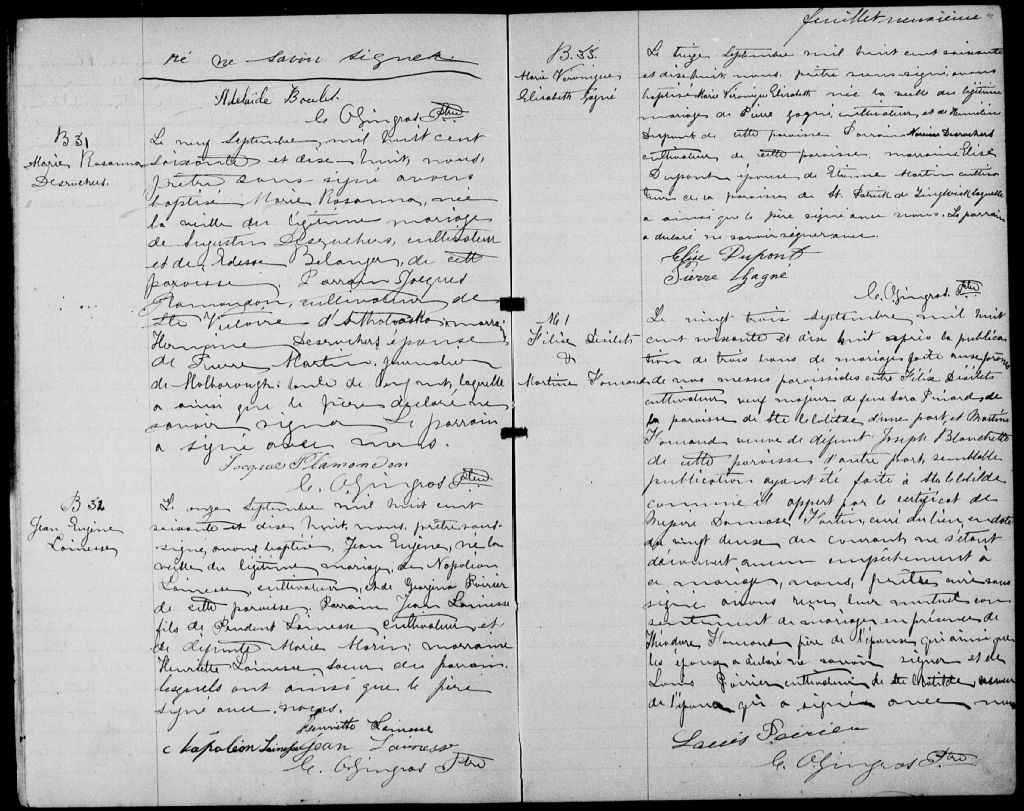 né ne savoir signer.
Adelaïde Boulet.
C. O. Gingras Ptre
B 31
Marie Rosanna
Desruchers.
Le neuf Septembre, mil huit cent
soixante et dise huit, nous,
prêtre sous-signé avons
baptisé Marie Rosanna, née
la veille du légitime mariage
de Augustin Desruchers, cultivateur
et de Edesse Belanger, de cette
paroisse. Parrain Jacques
Plamondon, cultivateur de
Ste Victoire d'Athabaska; marrai
Hermine Desruchers épouse
de Pierre Martin, journalier
de tante de l'enfant, laquelle
a ainsi que le père declaré ne
savoir signer. Le parrain
a signé avec nous.
Jacques Plamondon
C. O. Gingras Ptre
B 32
Jean Eugène
Lainesse
Le onze Septembre mil huit cent
soixante et dise huit, nous, prêtre sous-
signé, avons baptisé, Jean Eugène, né la
veille du légitime mariage, de Napoleon
Lainesse, cultivateur, et de Georgina Poirier
de cette paroisse. Parrain Jean Lainesse
fils de Prudent Lainesse cultivateur et
de défunte Marie Morin; marraine
Henriette Lainesse soeur du parrain,
lesquels ont ainsi que le père
signé avec nous.
Henriette Lainesse
Napoléon Lainesse Jean Lainesse
C. O. Gingras Ptre
feuillet neuvième
B. 33
Marie Véronique
Elisabeth Gagné
Le treize Septembre mil huit cent soixante
et dise huit, nous, prêtre sous-signé, avons
baptisé Marie Véronique Elisabeth née la veille du légitime
mariage de Pierre Gagné, cultivateur, et de
Dupont de cette paroisse Parrain Desruchers
cultivateur de cette paroisse, marraine Elise
Dupont épouse de Etienne Martin cultiva
teur de la paroisse de St. Patrick de laquelle
a ainsi que le père signé avec nous. Le parrain
a declaré ne savoir signer
Elise Dupont
Pierre Gagné
C. O. Gingras Ptre
M 1
Félise Desilets
&
Martine Houmand
Le vingt trois septembre, mil huit
cent soixante et dise huit après la publica
tion de trois bans de mariage faite aux prônes
de nos messes paroissiales entre Félise Desilets
cultivateur veuf majeur de feue Sara Pinard, de
la paroisse de Ste Clotilde d'une part, et Martine
Houmand veuve de défunt Joseph Blanchette
de cette paroisse d'autre part, semblable
publication ayant été faite à Ste Clotilde
comme il appert par le certificat de
Messire Damase Fortin, curé du lieu, en date
du vingt deuse du courant, ne s'étant
découvert aucun empêchement à
ce mariage, nous, prêtre curé sous
signé avons reçu leur mutuel con
sentement de mariage en présence de
Théodure Houmand père de l'épouse qui ainsi que
les époux a declaré ne savoir signer et de
Louis Poirier cultivateur de Ste Clotilde,
de l'époux qui a signé avec nous
Louis Poirier
C. O. Gingras Ptre